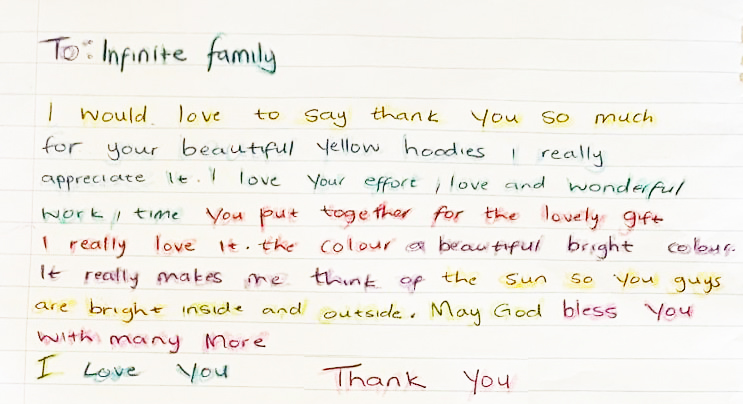 To: Infinite family
I would love to say thank you so much
for your beautiful yellow hoodies I really
appreciate it. I love your effort, love and wonderful
work, time you put together for the lovely gift
I really love it. the colour a beautiful bright colour.
It really makes me think of the sun so you guys
are bright inside and outside. May God bless you
with many more
I Love you Thank you